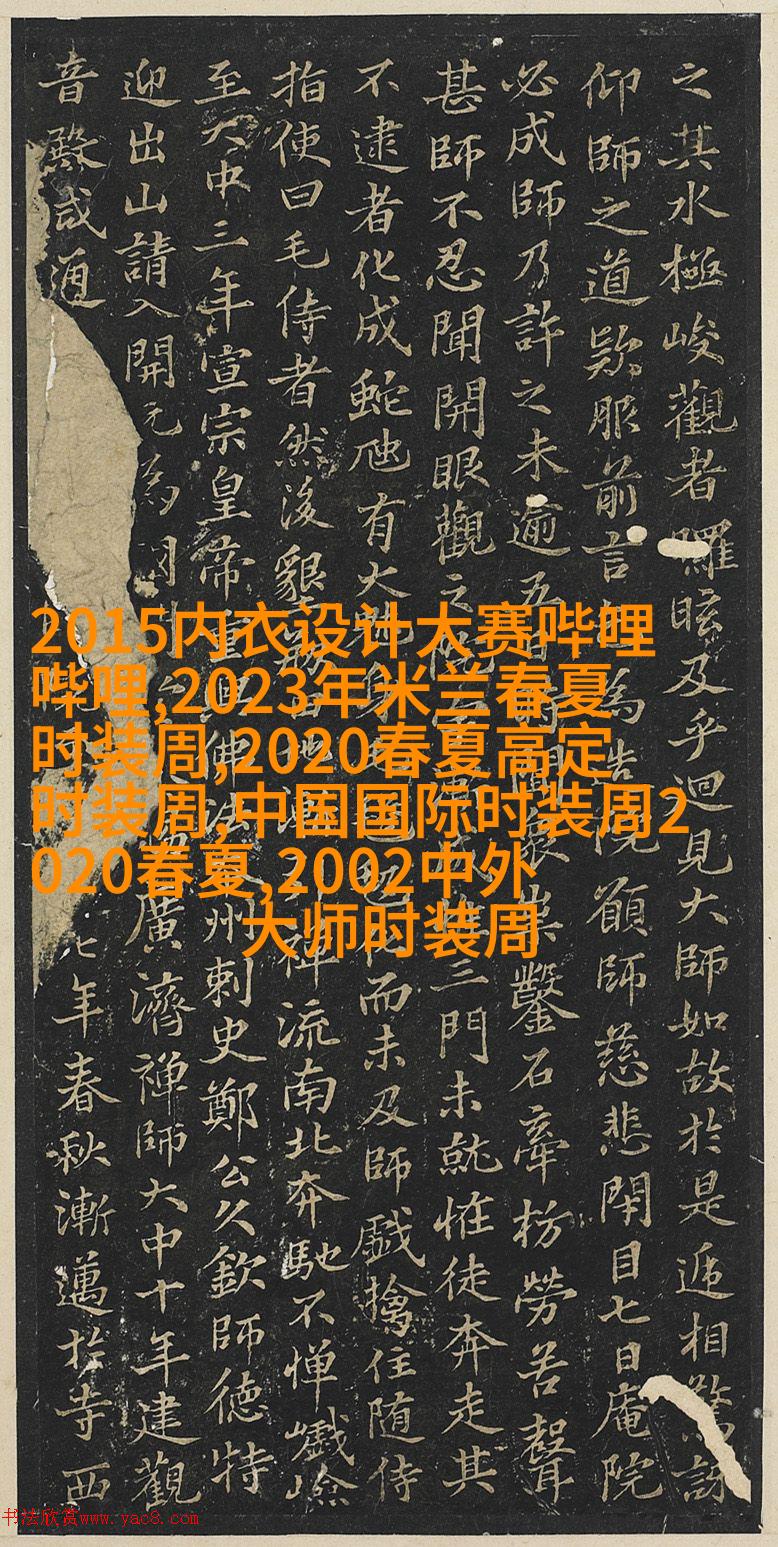 之其水極峻觀者矚眩及乎迴見大師如故於是遞相驚訝
仰師之道欵服前言 為 院願師慈悲閉目七日庵院
必成師乃許之未逾五 鑿石牽枋勞苦聲
甚師不忍聞開眼觀之 三門未就惟徒奔走其
不逮者化成蛇虺有大 而未及師戲擒住随侍
指使曰毛侍者然後 流南北奔馳不憚巇嶮
至大中三年宣宗皇帝重 佛法 州刺史鄭公久欽師德特
迎出山請入開元為 廣濟禪師大中十年建觀
音殿咸通 七年春秋漸邁於寺西
2015内衣设计大赛哔哩
哔哩,2023年米兰春夏
时装周,2020春夏高定
时装周,中国国际时装周2
020春夏,2002中外
大师时装周
书法欣赏www.yac8.com